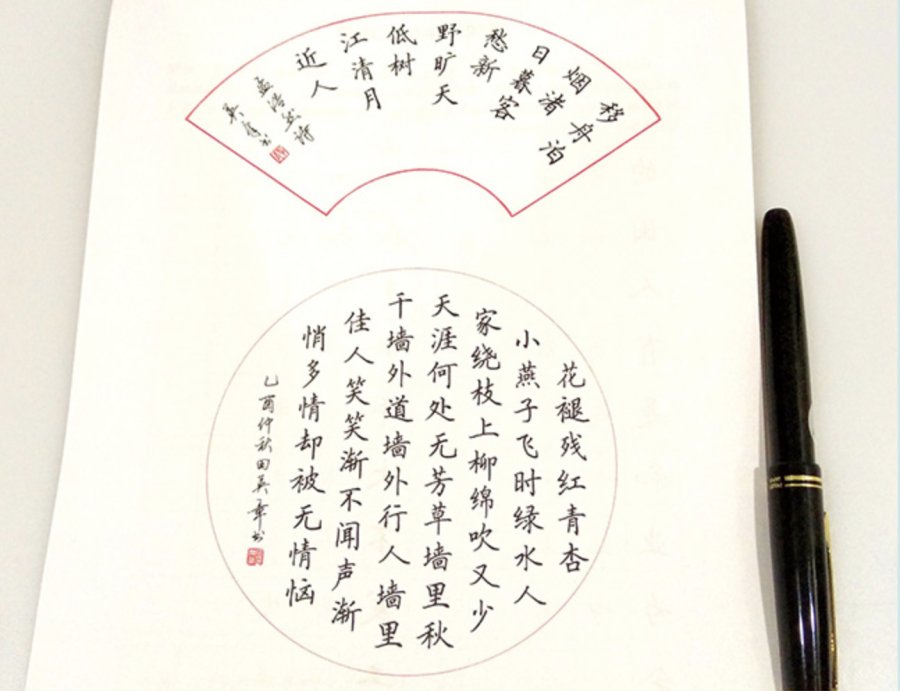 移舟泊
烟渚
日暮客
愁新
野旷天
低树
江清月
近人
孟浩然诗
英章书
花褪残红青杏
小燕子飞时绿水人
家绕枝上柳绵吹又少
天涯何处无芳草墙里秋
千墙外道墙外行人墙里
佳人笑笑渐不闻声渐
悄多情却被无情恼
乙酉仲秋田英章书